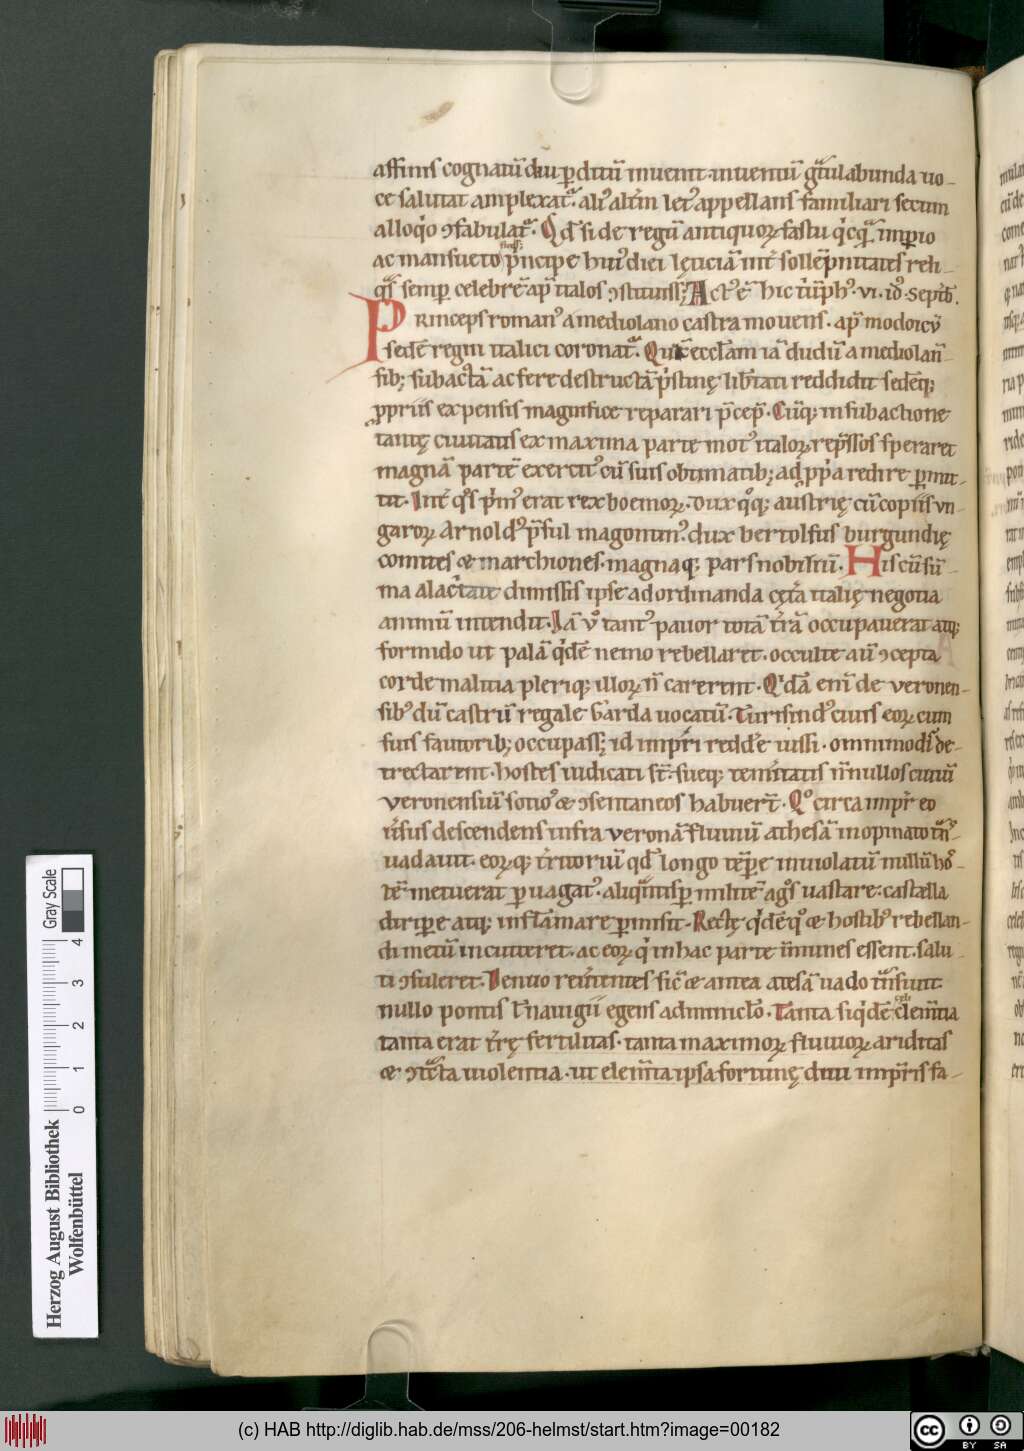 affinis cognatū diu ꝑditū invenit. inventū gͣtulabunda uo-
ce salutat amplexatᷓ. aliꝰ altīm letꝰ appellans familiari secum
alloqͥo ꝯfabulatᷓ. Qd̄ si de regū antiquoꝝ fastu qͥcqᷓ imp̄io
ac mansueto pͥncipe huiꝰ diei lęticiā int̄ sollēpnitates reli-
qͣs semꝑ celebrē ap̄ italos ꝯstituiss&. Actꝰ ē hic tͥūphꝰ. vi. idꝰ. Septb̄.
Princeps romanꝰ a mediolano castra movens. ap̄ modoicū
sedē regni italici coronatᷓ. Quā ecclām iā dudū a mediolan̄-
sibꝫ subactā ac fere destructā pͥstinę lib̄tati reddidit sedēqꝫ
ꝓpriis expensis magnifice reparari p̄cep̄. Cūqꝫ in subactione
tantę civitatis ex maxima parte motꝰ italoꝝ rep̄ssos speraret
magnā partē exercitꝰ cū suis obtimatibꝫ ad ꝓp̄a redire ꝑmit-
tit. Int̄ qͦs pͥmꝰ erat rex boemoꝝ. dux qͦqꝫ austrię cū copiis un-
garoꝝ Arnoldꝰ p̄sul magontinꝰ. dux bertolfus burgundię
comites & marchiones. magnaqꝫ pars nobiliū. His cū sū-
ma alac̄tate dimissis ipse ad ordinanda cęt̄a italię negotia
animū intendit. Iā vͦ tantꝰ pavor totā t̄rā occupaverat atqꝫ
formido ut palā qͥdē nemo rebellaret. occulte aū ꝯcepta
corde malitia pleriqꝫ illoꝝ n̄ carerent. Qͥdā eni de veronen-
sibꝰ dū castrū regale Garda uocatū. Turisindꝰ civis eoꝝ cum
suis fautoribꝫ occupass& id imp̄ri redde iussi. omnimodis de-
trectarent. hostes iudicati st̄. sueqꝫ tem̄itatis n̄nullos civiū
veronensiū sotioꝰ & ꝯsentaneos habuer̄t. Qͦ circa imp̄r eo
ūsus descendens infra veronā fluviū athesā inopinato tͣnꝰ-
vadavit. eoꝝqꝫ t̄ritoriū qd̄ longo tēp̄e inviolatū nullū hoͦ-
tē metuerat ꝑvagatꝰ. aliqͣntisꝑ militē agͦs vastare. castella
diriꝑe atqꝫ inflāmare ꝑmisit. Rectę qͥdē qͦ & hostibꝰ rebellan-
di metū incuteret. ac eoꝝ qͥ in hac parte īmunes essent. salu-
ti ꝯsuleret. Denuo rev̄tentes sic̄ & antea atesā vado tͣnsiunt
nullo pontis l̄ navigii egens adminiclo. Tanta siqͥdē celi clem̄tia
tanta erat t̄rę fertilitas. tanta maximoꝝ fluvioꝝ ariditas
& ꝯtͣcta violentia. ut elem̄ta ipsa fortunę divi imp̄ris fa-
Gray Scale
0 1 2 3 4
Herzog August Bibliothek
Wolfenbüttel
(c) HAB http://diglib.hab.de/mss/206-helmst/start.htm?image=00182
cc BY SA